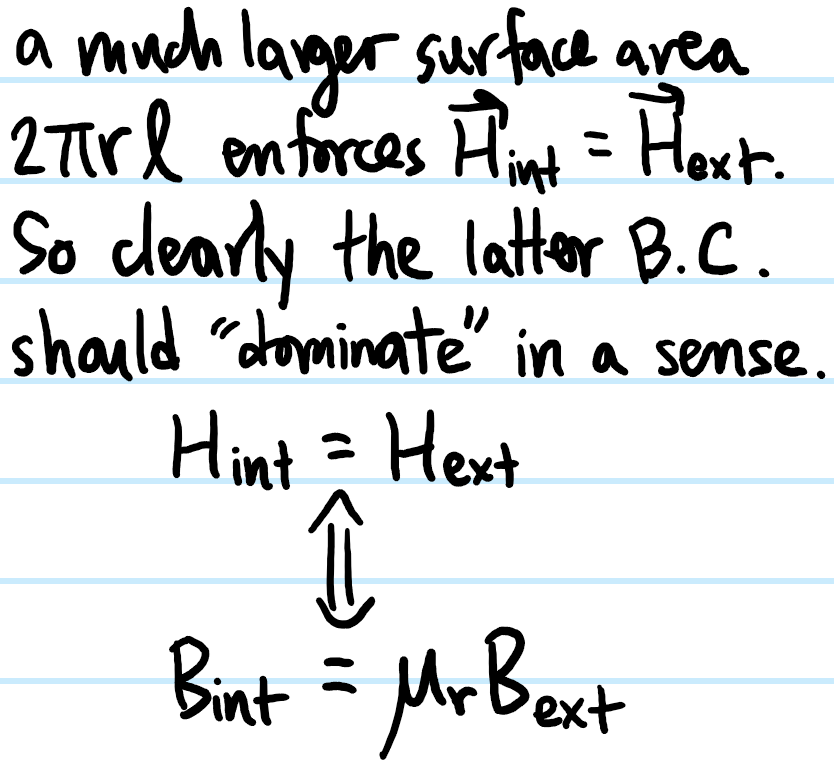 a much larger surface area
2πrℓ enforces H⃗int = H⃗ext.
So clearly the latter B.C.
should "dominate" in a sense.
Hint = Hext
⇕
Bint = μrBext